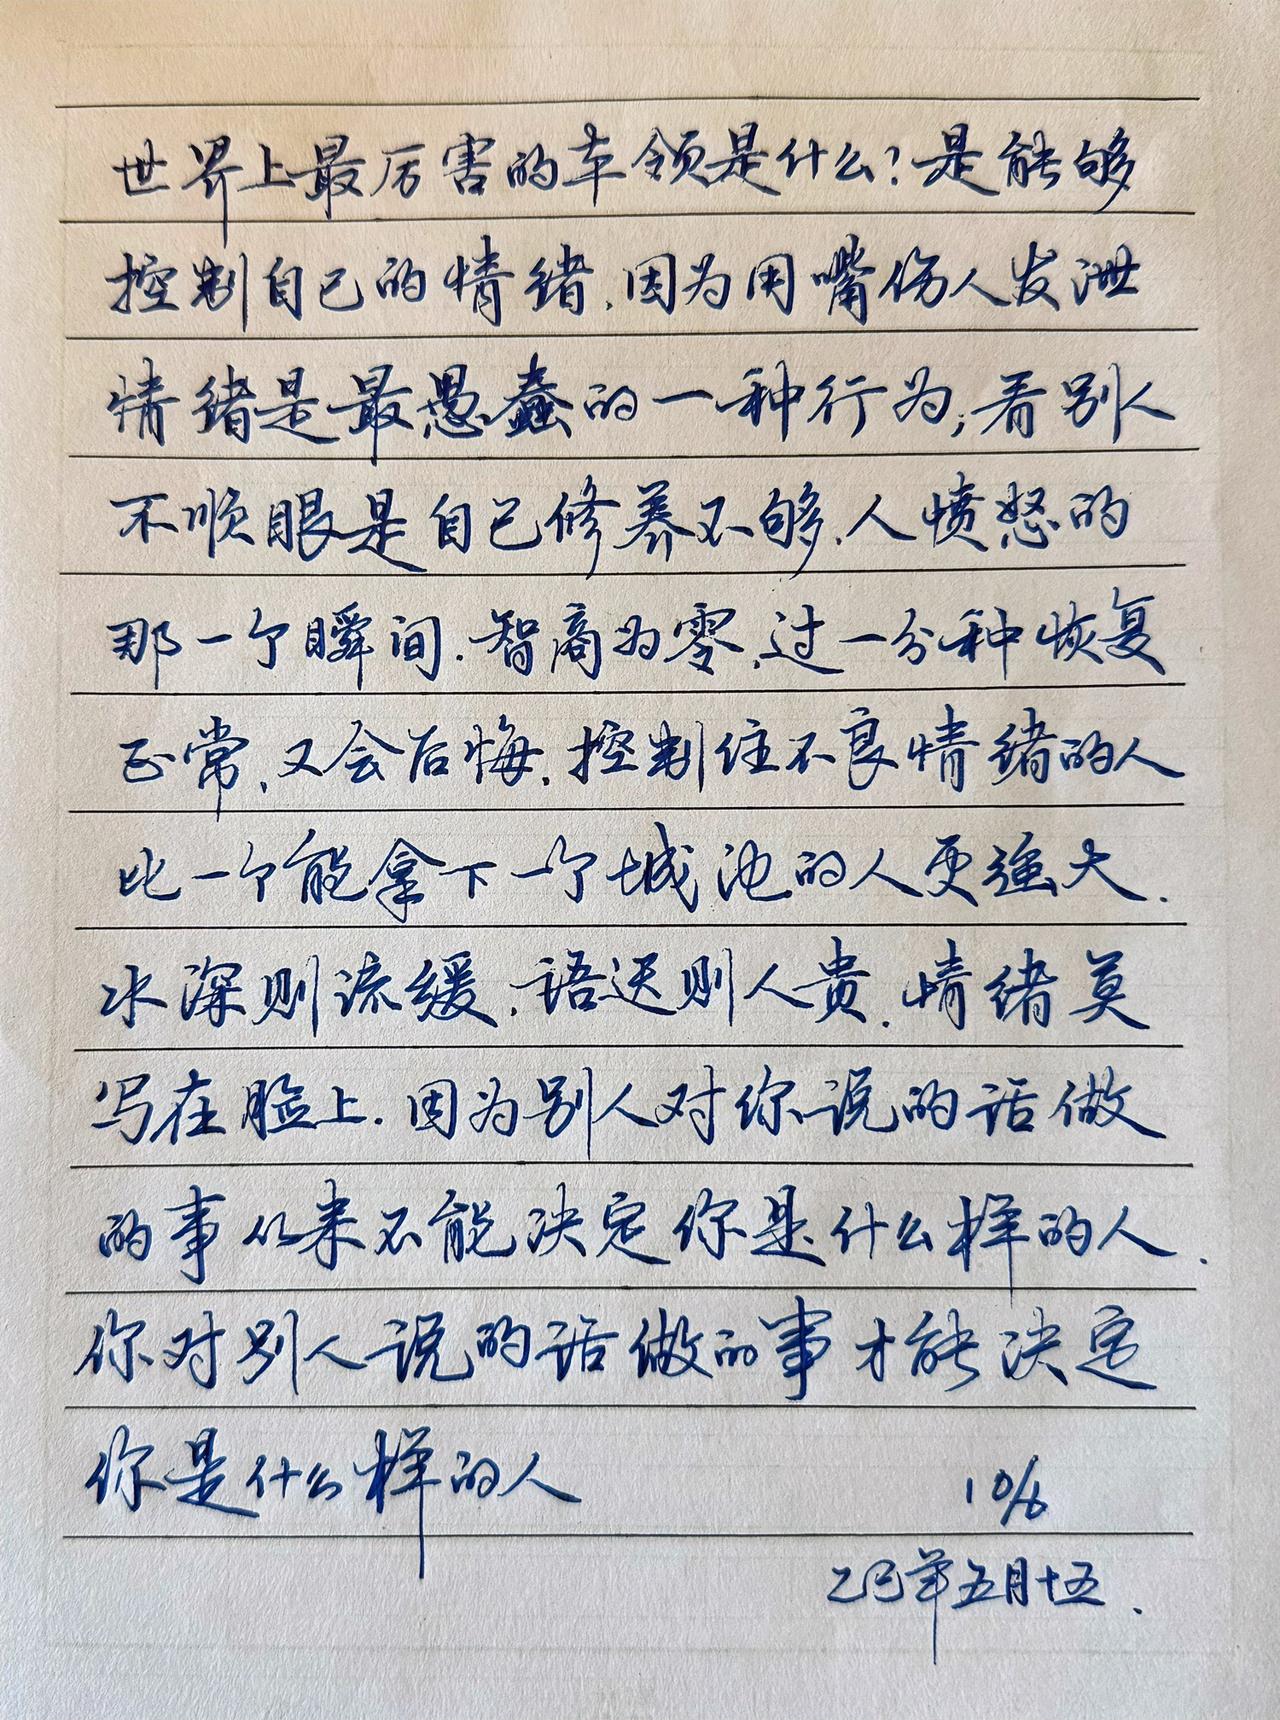 世界上最厉害的本领是什么?是能够
控制自己的情绪.因为用嘴伤人发泄
情绪是最愚蠢的一种行为,看别人
不顺眼是自己修养不够.人愤怒的
那一个瞬间.智商为零.过一分种恢复
正常.又会后悔.控制住不良情绪的人
比一个能拿下一个城池的人更强大.
水深则流缓.语迟则人贵.情绪莫
写在脸上.因为别人对你说的话做
的事从来不能决定你是什么样的人.
你对别人说的话做的事才能决定
你是什么样的人 10/6
乙巳年五月十五.